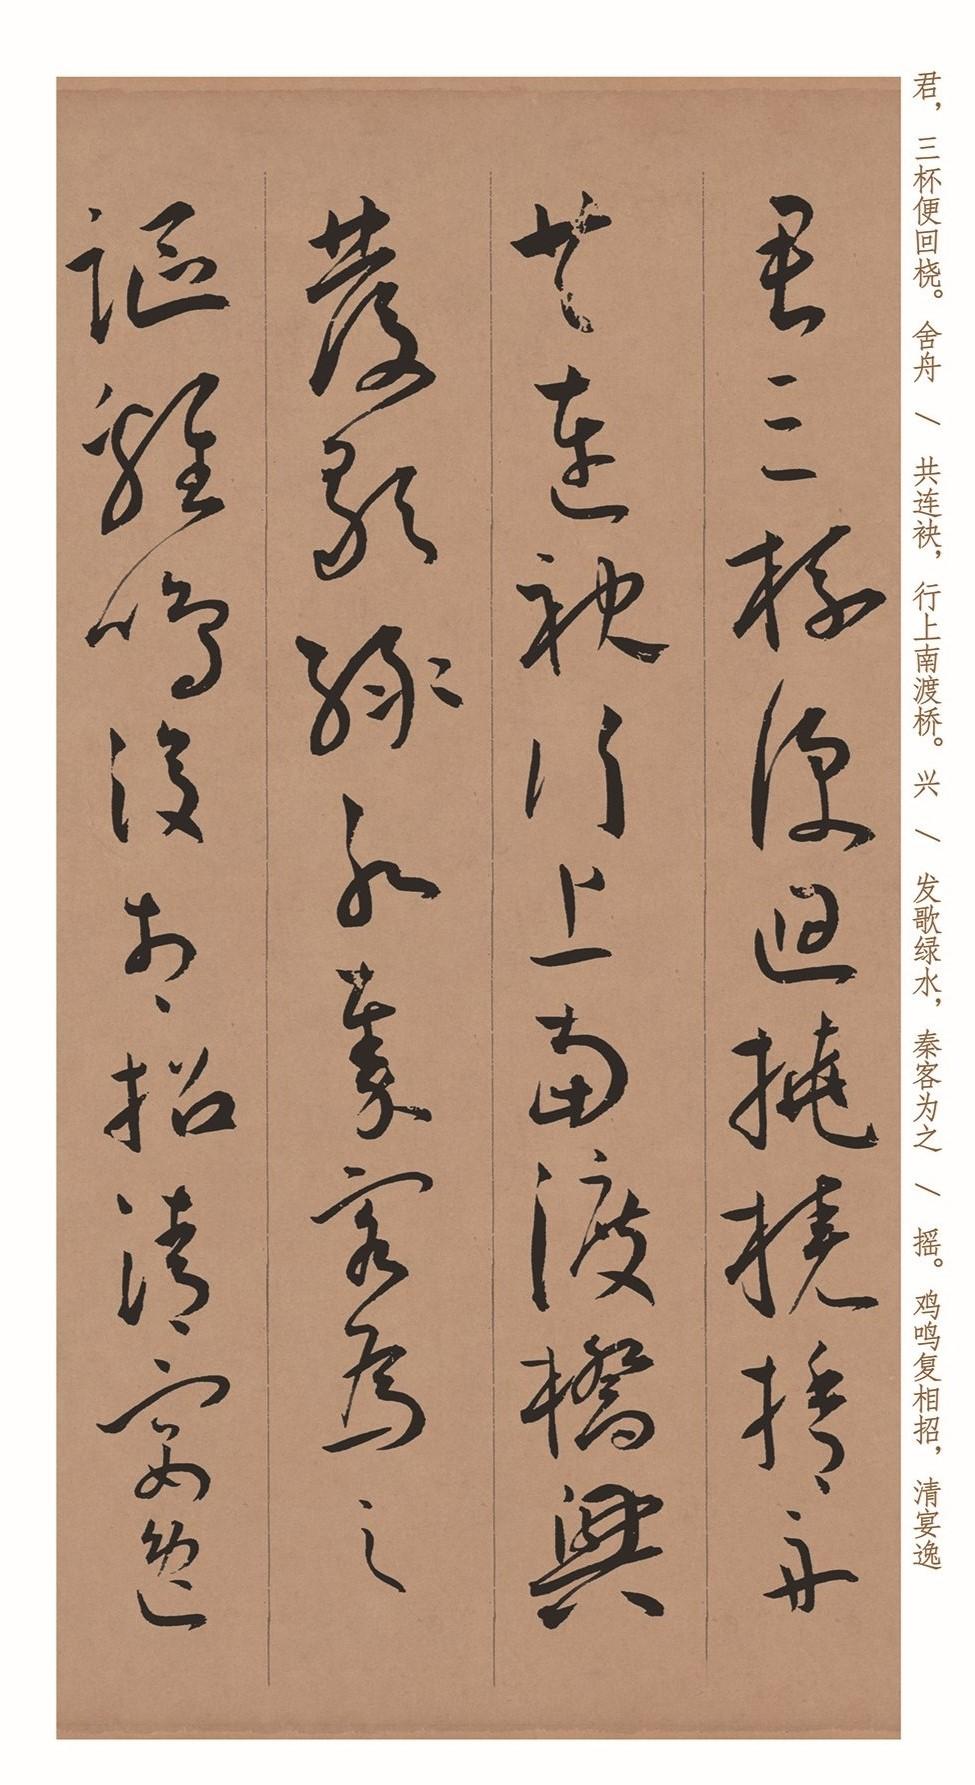 君，三杯便回桡。舍舟 \ 共连袂，行上南渡桥。兴 \ 发歌绿水，秦客为之 \ 摇。鸡鸣复相招，清宴逸
君三杯便迴撓橈捨舟
共連袂行上南渡橋興
發歌綠水秦客為之
謳雞鳴復相招清宴逸